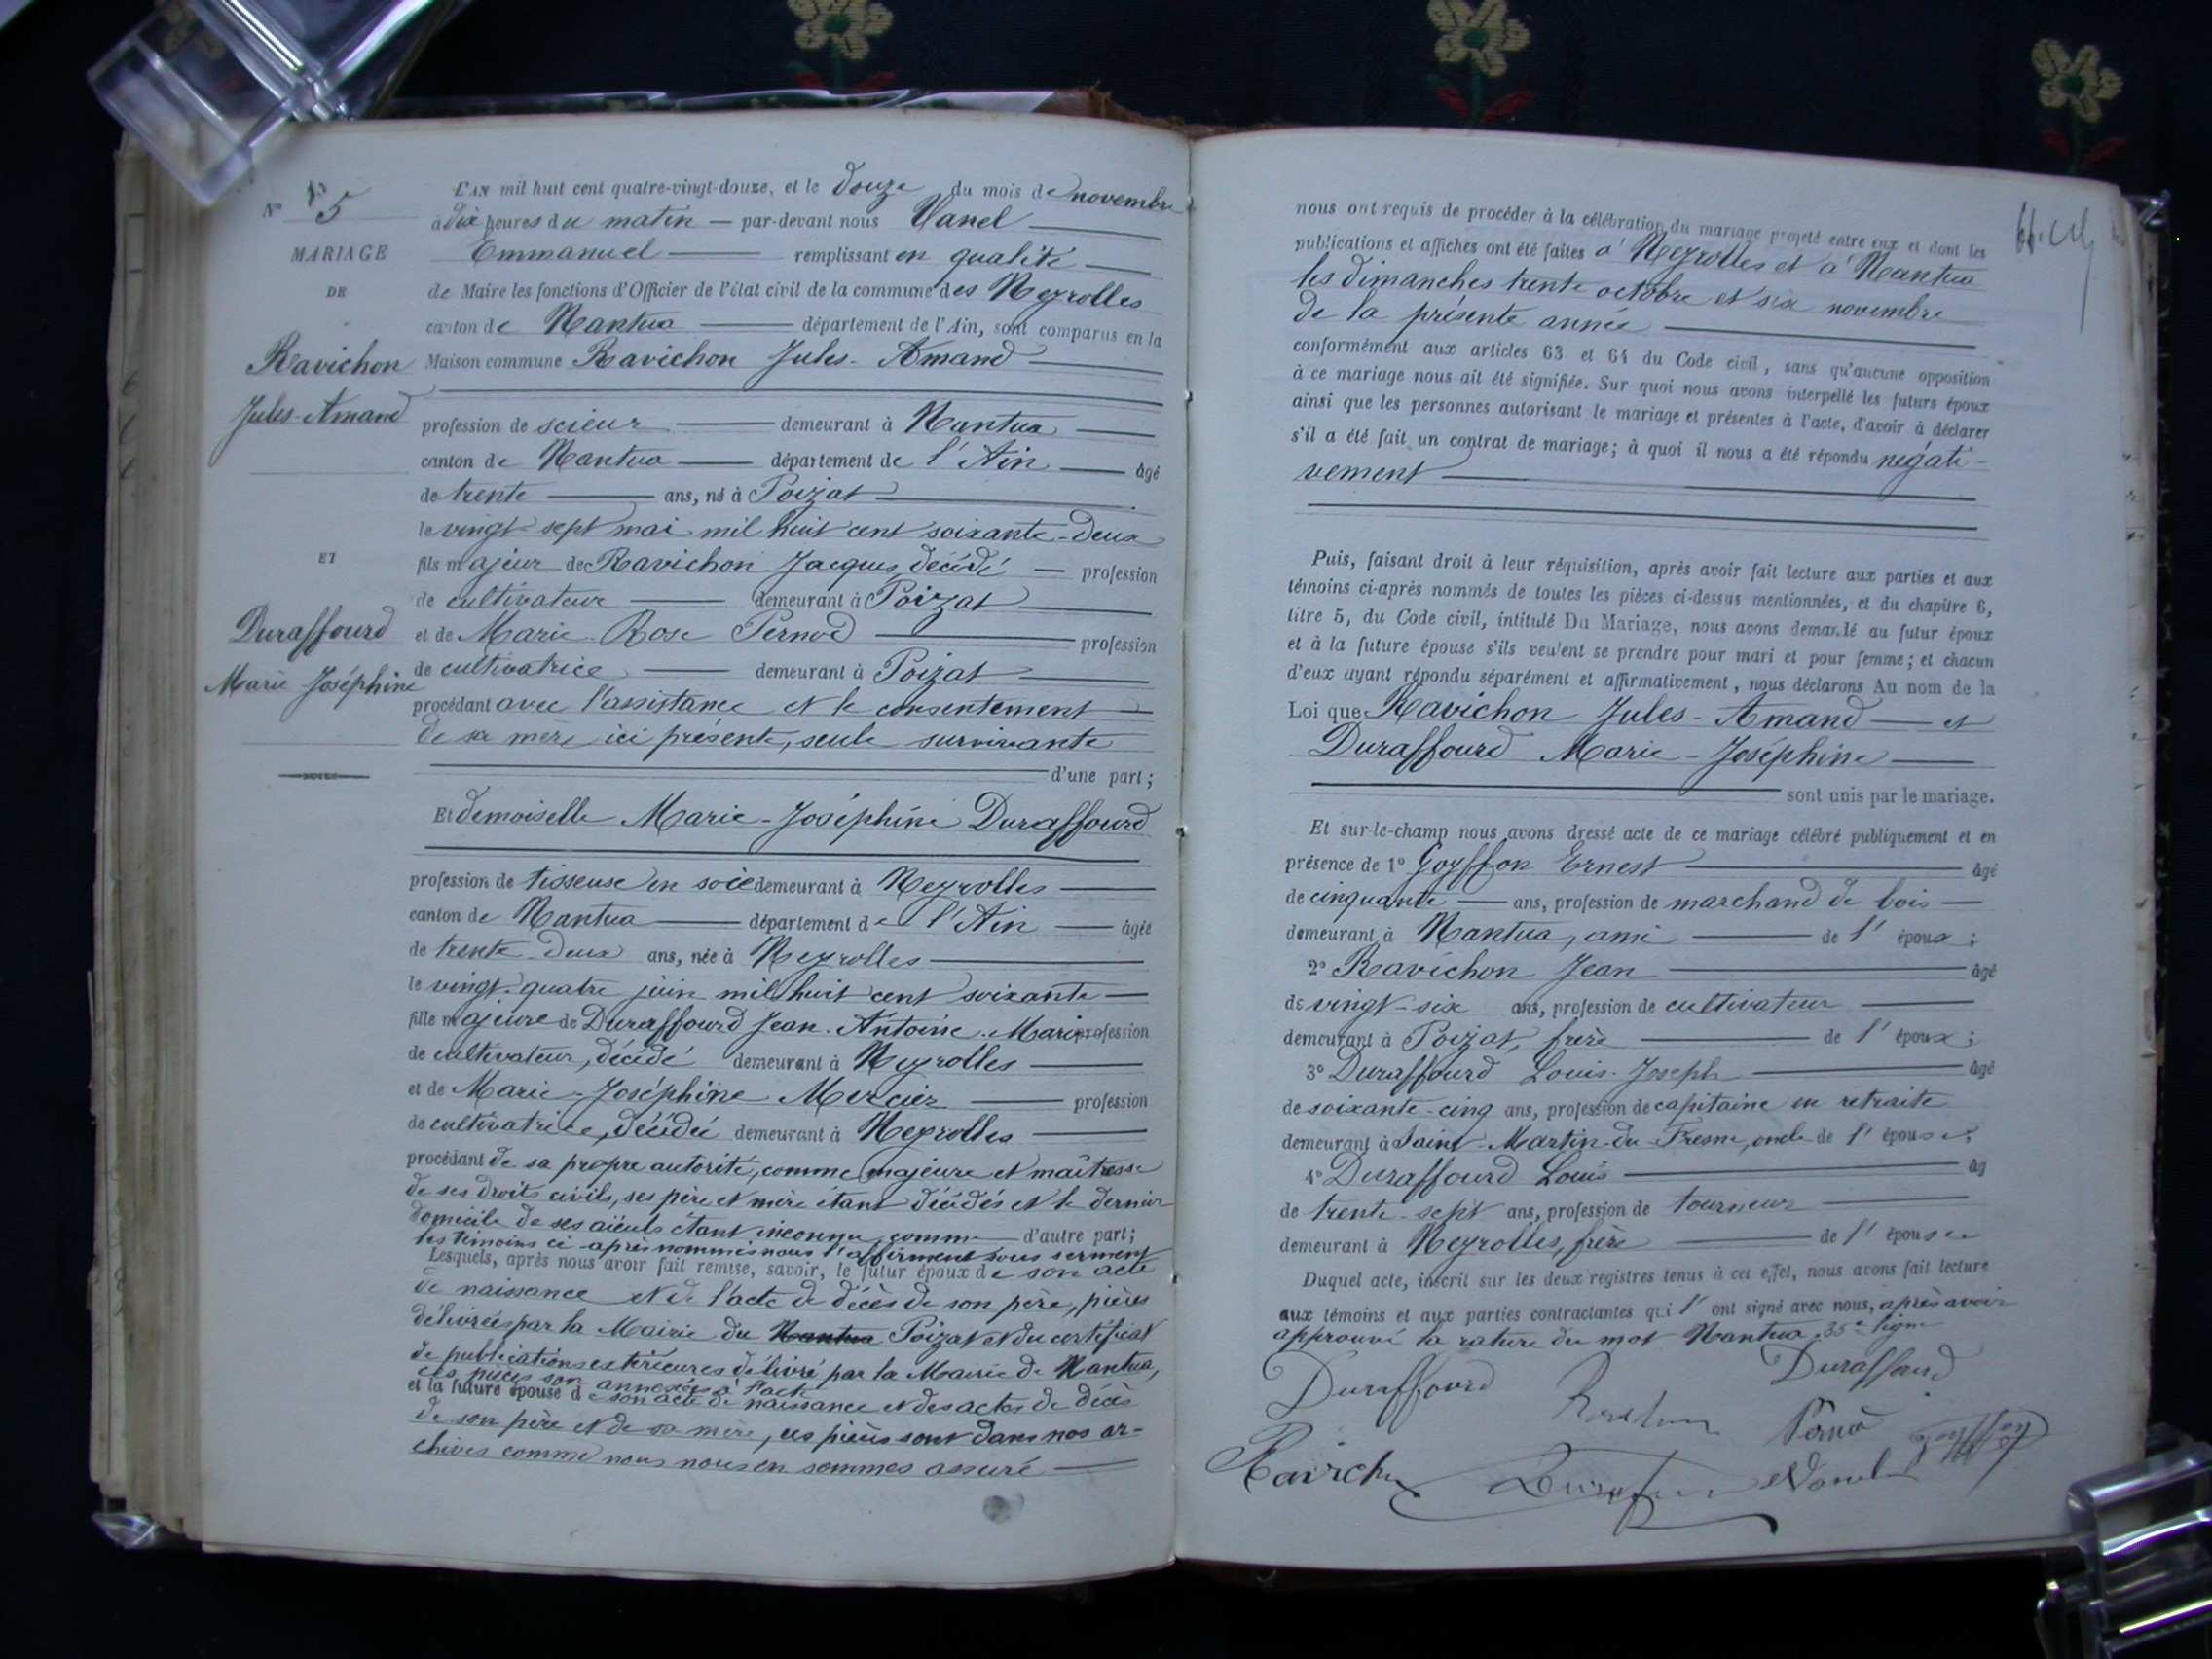 N° 5
MARIAGE
DE
Ravichon
Jules-Amand
ET
Duraffourd
Marie Joséphine
L'AN mil huit cent quatre-vingt-douze, et le douze du mois de novembre
à dix heures du matin — par-devant nous Vanel
Emmanuel — remplissant en qualité
de Maire les fonctions d'Officier de l'état civil de la commune des Neyrolles
canton de Nantua — département de l'Ain, sont comparus en la
Maison commune Ravichon Jules-Amand
profession de scieur — demeurant à Nantua
canton de Nantua — département de l'Ain — âgé
de trente — ans, né à Poizat
le vingt-sept mai mil huit cent soixante-deux
fils majeur de Ravichon Jacques, décédé — profession
de cultivateur — demeurant à Poizat
et de Marie Rose Pernod — profession
de cultivatrice — demeurant à Poizat
procédant avec l'assistance et le consentement
de sa mère ici présente, seule survivante
d'une part;
Et demoiselle Marie-Joséphine Duraffourd
profession de tisseuse en soie demeurant à Neyrolles
canton de Nantua — département de l'Ain — âgée
de trente-deux ans, née à Neyrolles
le vingt-quatre juin mil huit cent soixante
fille majeure de Duraffourd Jean-Antoine-Marie profession
de cultivateur, décédé demeurant à Neyrolles
et de Marie-Joséphine Mercier — profession
de cultivatrice, décédée demeurant à Neyrolles
procédant de sa propre autorité, comme majeure et maîtresse
de ses droits civils, ses père et mère étant décédés et le dernier
domicile de ses aïeuls étant inconnu, comme — d'autre part;
les témoins ci-après nommés nous l'affirment sous serment
Lesquels, après nous avoir fait remise, savoir, le futur époux de son acte
de naissance et de l'acte de décès de son père, pièces
délivrées par la Mairie du Nantua Poizat et du certificat
de publications extérieures délivré par la Mairie de Nantua,
ces pièces son annexées à l'acte
et la future épouse de son acte de naissance et des actes de décès
de son père et de sa mère, ces pièces sont dans nos ar-
chives comme nous nous en sommes assuré
nous ont requis de procéder à la célébration du mariage projeté entre eux et dont les
publications et affiches ont été faites à Neyrolles et à Nantua
les dimanches trente octobre et six novembre
de la présente année
conformément aux articles 63 et 64 du Code civil, sans qu'aucune opposition
à ce mariage nous ait été signifiée. Sur quoi nous avons interpellé les futurs époux
ainsi que les personnes autorisant le mariage et présentes à l'acte, d'avoir à déclarer
s'il a été fait un contrat de mariage; à quoi il nous a été répondu négati-
vement
Puis, faisant droit à leur réquisition, après avoir fait lecture aux parties et aux
témoins ci-après nommés de toutes les pièces ci-dessus mentionnées, et du chapitre 6,
titre 5, du Code civil, intitulé Du Mariage, nous avons demandé au futur époux
et à la future épouse s'ils veulent se prendre pour mari et pour femme; et chacun
d'eux ayant répondu séparément et affirmativement, nous déclarons Au nom de la
Loi que Ravichon Jules-Amand — et
Duraffourd Marie-Joséphine
sont unis par le mariage.
Et sur-le-champ nous avons dressé acte de ce mariage célébré publiquement et en
présence de 1° Goyffon Ernest — âgé
de cinquante — ans, profession de marchand de bois
demeurant à Nantua, ami — de l'époux;
2° Ravichon Jean — âgé
de vingt-six ans, profession de cultivateur
demeurant à Poizat, frère — de l'époux;
3° Duraffourd Louis-Joseph — âgé
de soixante-cinq ans, profession de capitaine en retraite
demeurant à Saint-Martin-du-Fresne, oncle de l'épouse;
4° Duraffourd Louis — âg
de trente-sept ans, profession de tourneur
demeurant à Neyrolles, frère — de l'épouse
Duquel acte, inscrit sur les deux registres tenus à cet effet, nous avons fait lecture
aux témoins et aux parties contractantes qui l'ont signé avec nous, après avoir
approuvé la rature du mot Nantua 35e ligne
Duraffourd Duraffourd
Pernod Goyffon
Ravichon Vanel